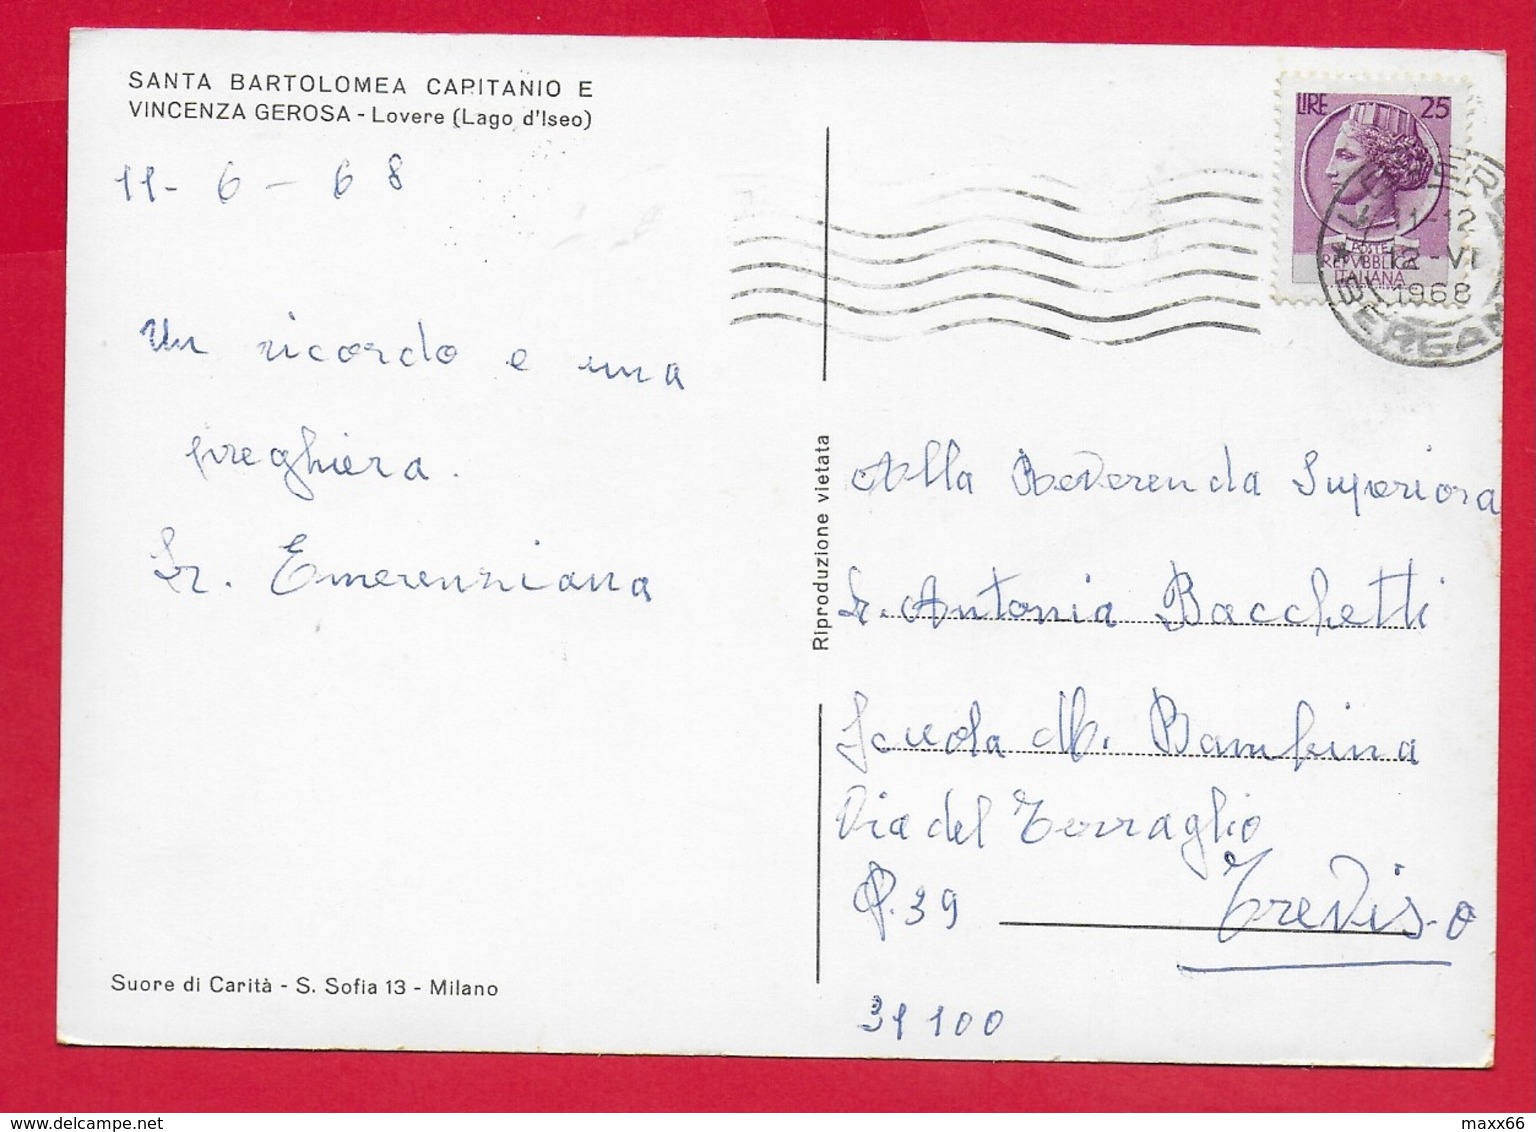 SANTA BARTOLOMEA CAPITANIO E
VINCENZA GEROSA - Lovere (Lago d'Iseo)
11 - 6 - 68
Un ricordo e una
preghiera.
Sr. Emerenziana
Suore di Carità - S. Sofia 13 - Milano
Riproduzione vietata
LIRE 25
POSTE
REPVBBLICA
ITALIANA
12 - VI
1968
BERGAM
Alla Reverenda Superiora
Sr. Antonia Bacchetti
Scuola M. Bambina
Via del Terraglio
39
Treviso
31100
www.delcampe.net
maxx66